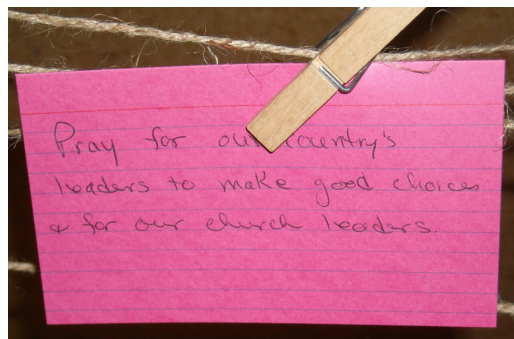 Pray for our country's
leaders to make good choices
& for our church leaders.